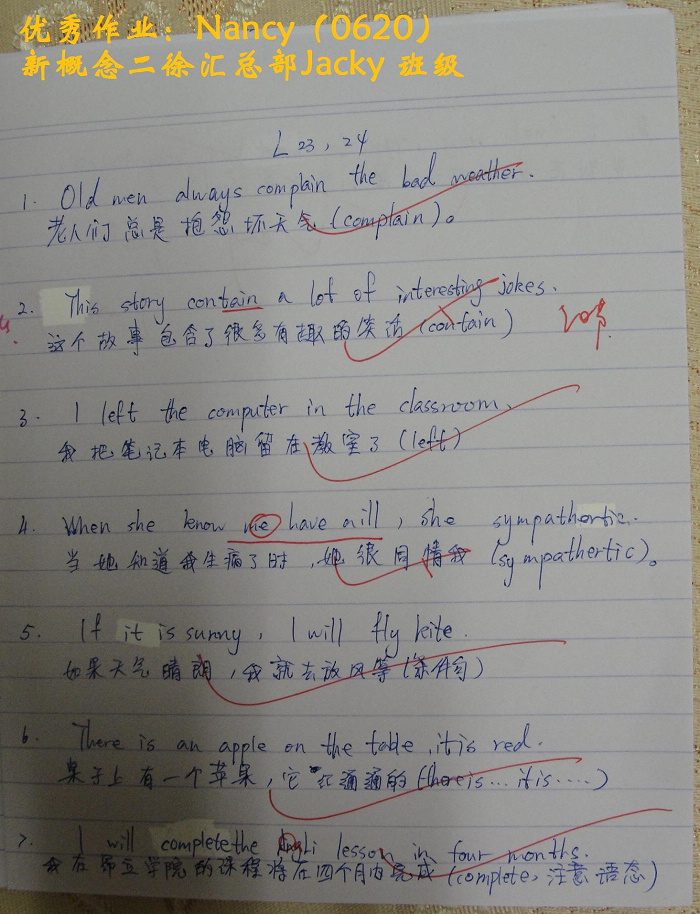 优秀作业：Nancy（0620）
新概念二徐汇总部Jacky 班级
L 23, 24
1. Old men always complain the bad weather.
老人们总是抱怨坏天气 (complain)。
2. This story contain a lot of interesting jokes.
这个故事包含了很多有趣的笑话 (contain)
3. I left the computer in the classroom.
我把笔记本电脑留在教室了 (left)
4. When she know me have a ill, she sympathertic.
当她知道我生病了时，她很同情我 (sympathertic)。
5. If it is sunny, I will fly kite.
如果天气晴朗，我就去放风筝 (条件句)
6. There is an apple on the table, it is red.
桌子上有一个苹果，它 (there is... it is ....)
7. I will complete the lesson in four months.
我在 学院的课程将在四个月内完成 (complete, 注意语态)